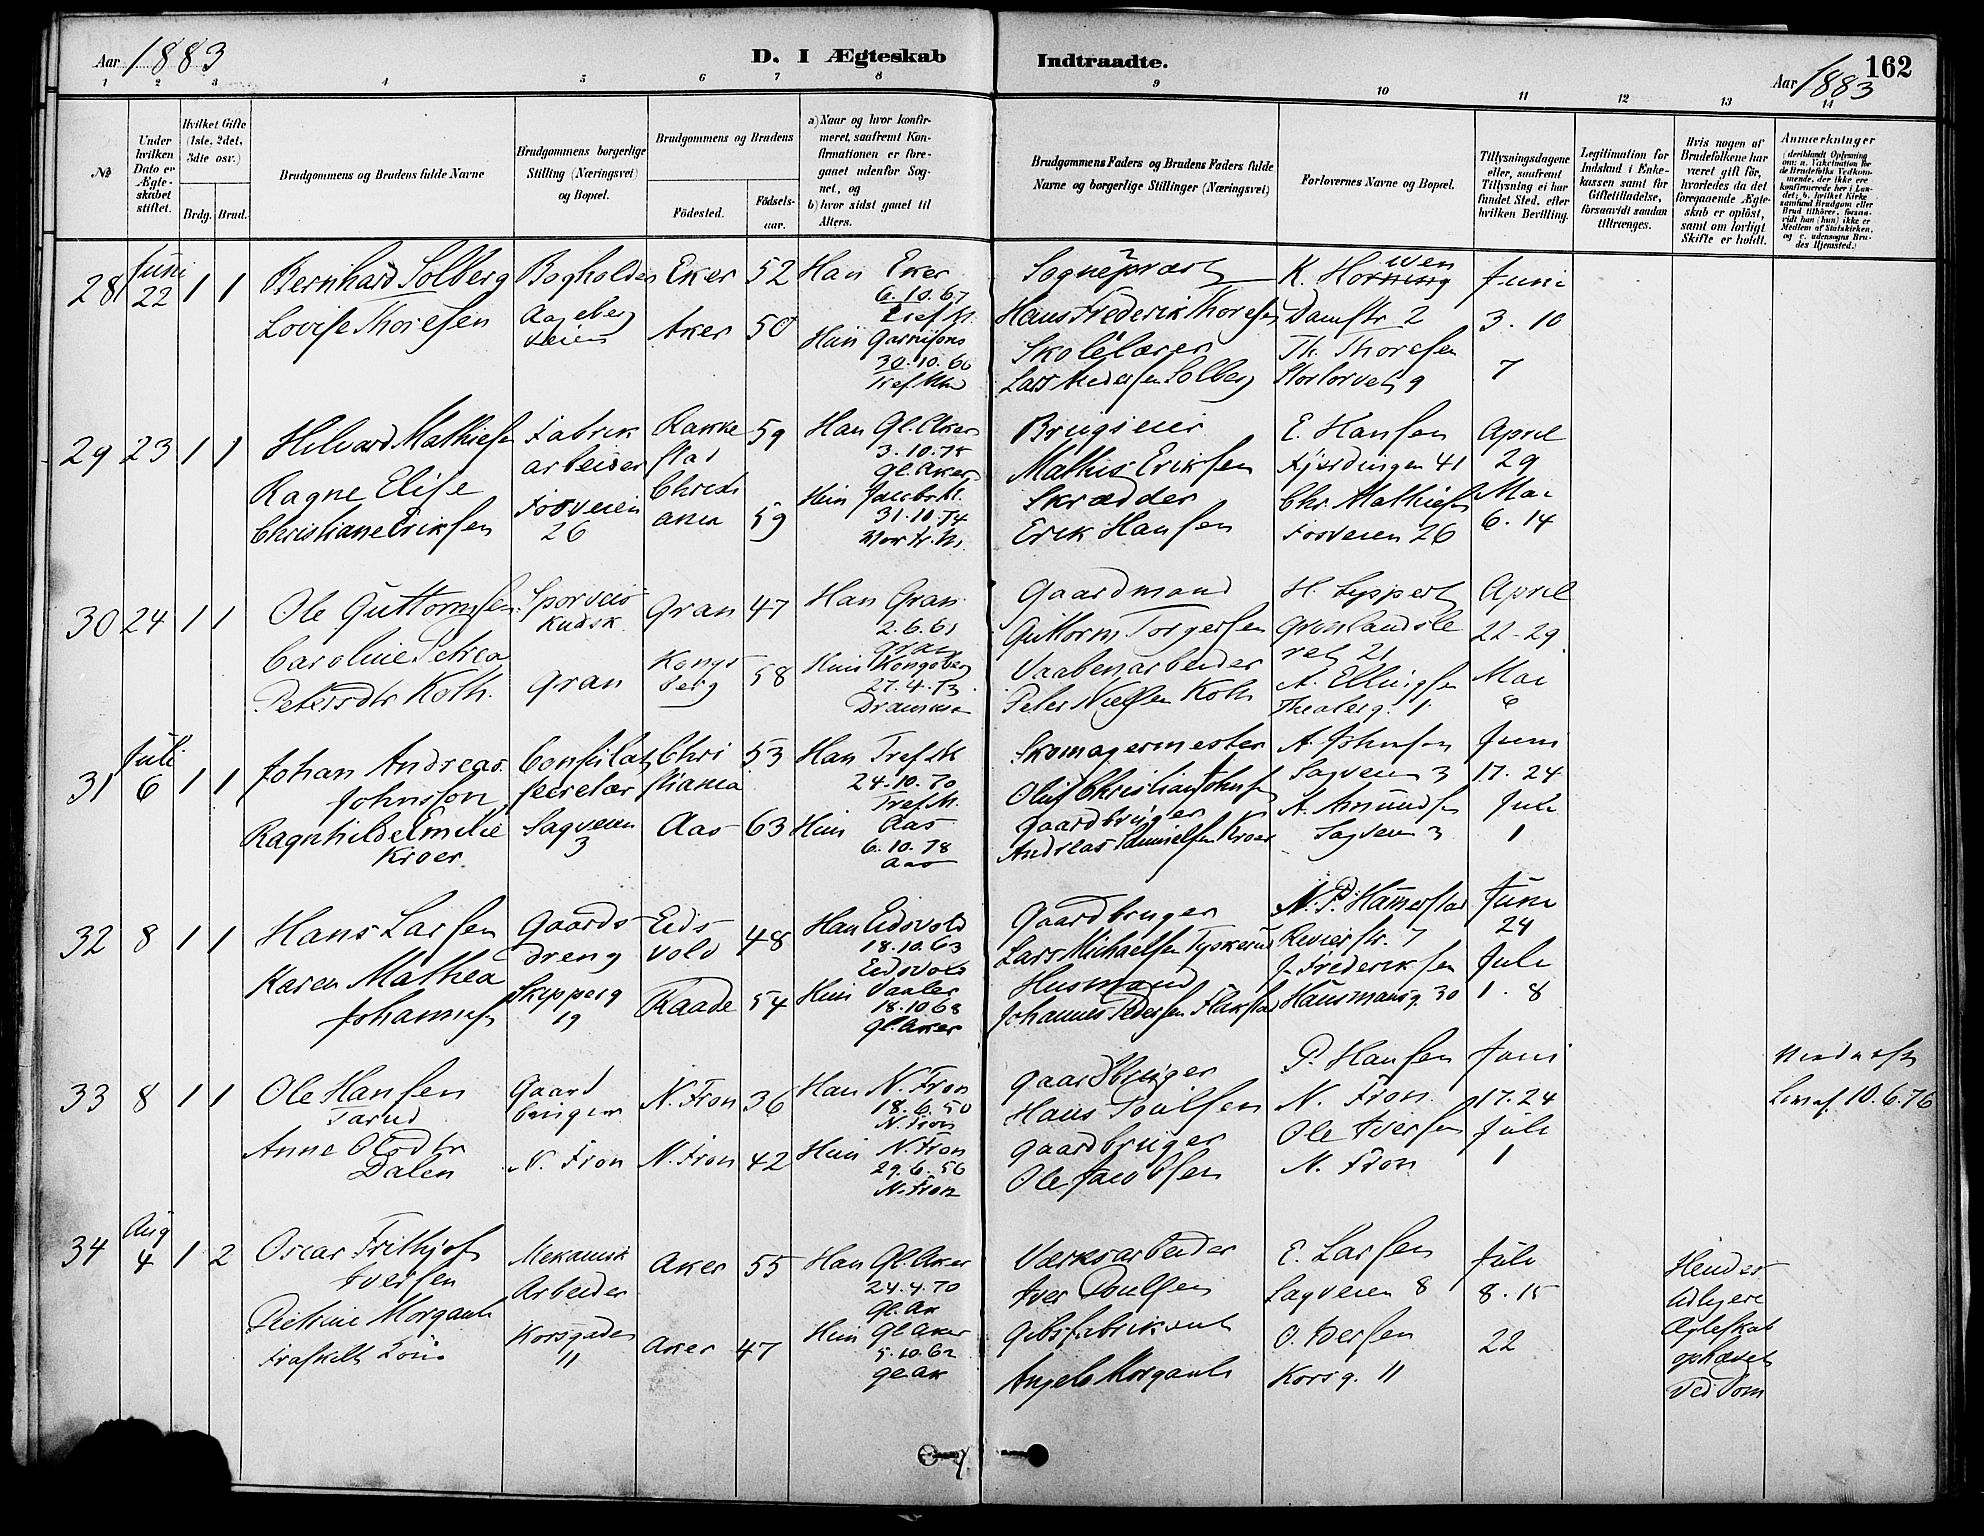 Aar 1883
D. I Ægteskab Indtraadte.
Aar 1883
162
1 2 3 4 5 6 7 8 9 10 11 12 13 14
No
Under hvilken Dato er Ægteskabet stiftet.
Hvilket Gifte (1ste, 2det, 3die osv.)
Brdg. Brud.
Brudgommens og Brudens fulde Navne
Brudgommens borgerlige Stilling (Næringsvei) og Bopæl.
Brudgommens og Brudens
Fødested.
Fødselsaar.
a) Naar og hvor konfirmeret, saafremt Konfirmationen er foregaaet udenfor Sognet, og
b) hvor sidst gaaet til Alters.
Brudgommens Faders og Brudens Faders fulde Navne og borgerlige Stillinger (Næringsvei)
Forlovernes Navne og Bopæl.
Tillysningsdagene eller, saafremt Tillysning ei har fundet Sted, efter hvilken Bevilling.
Legitimation for Indskud i Enkekassen samt for Giftetilladelse, forsaavidt saadan tiltrænges.
Hvis nogen af Brudefolkene har været gift før, hvorledes da det foregaaende Ægteskab er opløst, samt om lovligt Skifte er holdt.
Anmerkninger
(deriblandt Oplysning om: a. Vakcination for de Brudefolks Vedkommende, der ikke ere konfirmerede her i Landet; b. hvilket Kirkesamfund Brudgom eller Brud tilhører, forsaavidt han (hun) ikke er Medlem af Statskirken, og c. udensogns Brudes Hjemsted.)
28 Juni 22 1 1
Bernhard Solberg
Lovise Thoresen
Bogholder
Eker 52
Aker 50
Han Eker
6.10.67
Tref.K.
Hun Garnisons
30.10.66
Sognepræst
Hans Frederik Thoresen
Skolelærer
Lars Pedersen Solberg
K. Horn
Damstr 2
Th. Thoresen
Stortorvet 9
Juni
3. 10
7
29 23 1 1
Hilvard Mathiesen
Ragne Elise
Christiane Eriksen
Fabrik
arbeider
Fosveien
26
Rakke
stad 59
Christi
ania 59
Han Gl. Aker
3.10.75
Gl. Aker
Hun Jacobs K.
31.10.74
Vor Fr. K.
Brugseier
Mathis Eriksen
Skrædder
Erik Hansen
E. Hansen
Fjerdingen 41
Chr. Mathiesen
Fosveien 26
April
29
Mai
6. 14
30 24 1 1
Ole Guttormsen
Caroline Petrea
Petersdtr Koth.
Sporveis
Kudsk
Gran
Gran 47
Kongs
berg 58
Han Gran
2.6.61
Gran
Hun Kongsberg
27.4.73
Drammen
Gaardmand
Guttorm Torgersen
Vaabenarbeider
Peter Nielsen Koth
H. Lyppert
Grønlandsle
ret 21
A. Ellingsen
Theaterg. 1
April
22-29
Mai
6
31 Juli 6 1 1
Johan Andreas
Johnsson
Ragnhilde Emilie
Kroer
Consulat
secretær
Sagveien
3
Chri
stiania 53
Aas 63
Han Tref.K
24.10.70
Tref.K.
Hun Aas
6.10.78
Aas
Skomagermester
Oluf Christian Johnsen
Gaardbruger
Andreas Samuelsen Kroer
A. Johnsen
Sagveien 3
A. Amundsen
Sagveien 3
Juni
17. 24
Juli
1
32 8 1 1
Hans Larsen
Karen Mathea
Johannesen
Gaards
dreng
Skipperg
19
Eids
vold 48
Raade 54
Han Eidsvold
18.10.63
Eidsvold
Hun Vaaler
18.10.68
Gl. Aker
Gaardbruger
Lars Michaelsen Tyskerud
Husmand
Johannes Pedersen Flakstad
N. P. Hamerstad
Revierstr. 7
J. Frederiksen
Hausmansg. 30
Juni
24
Juli
1. 8
33 8 1 1
Ole Hansen
Tarud
Anne Olsdtr
Dalen
Gaard
bruger
N. Fron
N. Fron 36
N. Fron 42
Han N. Fron
18.6.50
N. Fron
Hun N. Fron
29.6.56
N. Fron
Gaardbruger
Hans Poulsen
Gaardbruger
Ole Jacobsen
P. Hansen
N. Fron
Ole Iversen
N. Fron
Juni
17. 24
Juli
1
10.6.76
34 Aug 4 1 2
Oscar Frithjof
Iversen
Morganti
Fraskilt
Mekanisk
Arbeider
Korsgaden
11
Aker 55
Aker 47
Han Gl. Aker
24.4.70
Gl. Ak
Hun Gl Aker
5.10.62
Gl. Ak
Værksarbeider
Iver Poulsen
Gibsfabrikant
Angelo Morganti
E. Larsen
Sagveien 8
O. Iversen
Korsg. 11
Juli
8. 15
22
Hendes
tidligere
Ægteskab
ophævet
ved Dom